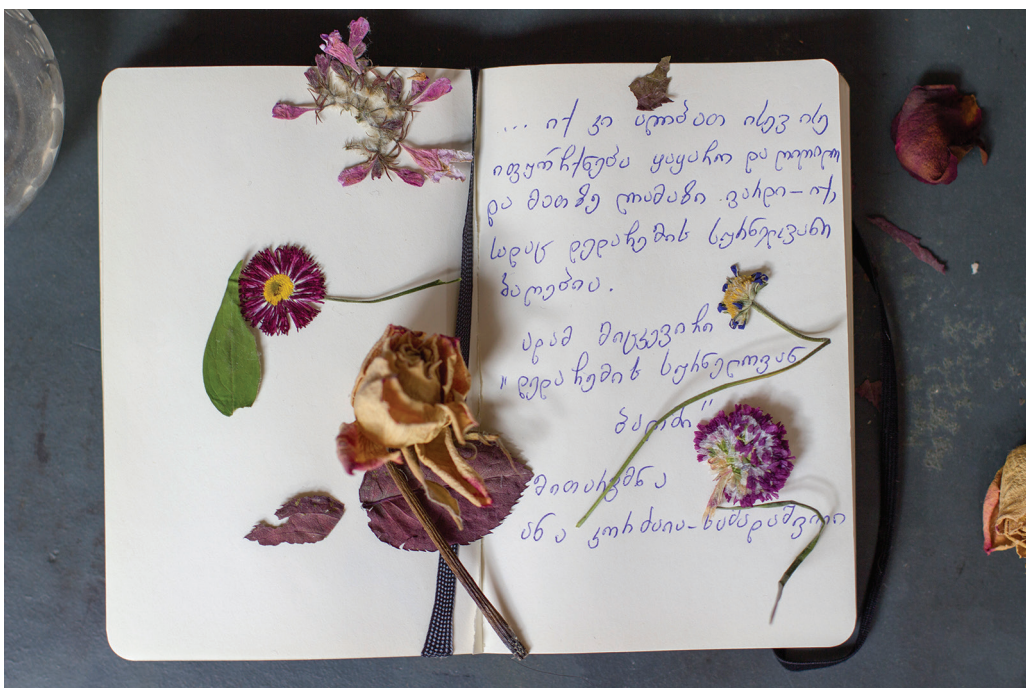 ... იქ კი ალბათ ისევ ისე
იფურჩქნება ყაყაჩო და ღიღილო
და მათზე ლამაზი ვარდი – იქ,
სადაც დედაჩემის სურნელოვანი
ბაღებია.
ადამ მიცკევიჩი
"დედაჩემის სურნელოვან
ბაღში"
მითარგმნა
ანა კორძაია-სამადაშვილი